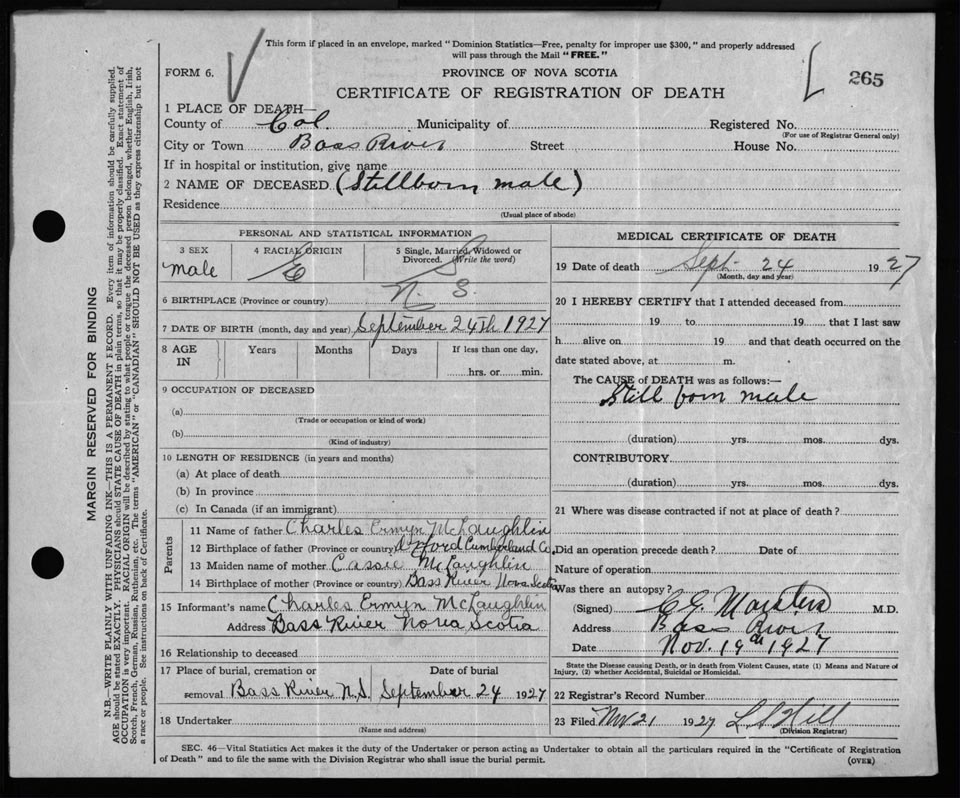 This form if placed in an envelope, marked "Dominion Statistics—Free, penalty for improper use $300," and properly addressed
will pass through the Mail "FREE."
FORM 6.
PROVINCE OF NOVA SCOTIA
265
CERTIFICATE OF REGISTRATION OF DEATH
1 PLACE OF DEATH—
County of Col. Municipality of Registered No.
(For use of Registrar General only)
City or Town Bass River Street House No.
If in hospital or institution, give name
2 NAME OF DECEASED (Stillborn male)
Residence
(Usual place of abode)
PERSONAL AND STATISTICAL INFORMATION
3 SEX 4 RACIAL ORIGIN 5 Single, Married, Widowed or
Divorced. (Write the word)
male E S
6 BIRTHPLACE (Province or country) N. S.
7 DATE OF BIRTH (month, day and year) September 24th 1927
8 AGE IN Years Months Days If less than one day,
hrs. or min.
9 OCCUPATION OF DECEASED
(a)
(Trade or occupation or kind of work)
(b)
(Kind of industry)
10 LENGTH OF RESIDENCE (in years and months)
(a) At place of death
(b) In province
(c) In Canada (if an immigrant)
Parents
11 Name of father Charles Ermyn McLaughlin
12 Birthplace of father (Province or country) Oxford Cumberland Co.
13 Maiden name of mother Cassie McLaughlin
14 Birthplace of mother (Province or country) Bass River Nova Scotia
15 Informant's name Charles Ermyn McLaughlin
Address Bass River Nova Scotia
16 Relationship to deceased
17 Place of burial, cremation or Date of burial
removal Bass River N.S. September 24 1927
18 Undertaker
(Name and address)
MEDICAL CERTIFICATE OF DEATH
19 Date of death Sept. 24 1927
(Month, day and year)
20 I HEREBY CERTIFY that I attended deceased from
19 to 19 that I last saw
h alive on 19 and that death occurred on the
date stated above, at m.
The CAUSE of DEATH was as follows:—
Still born male
(duration) yrs. mos. dys.
CONTRIBUTORY
(duration) yrs. mos. dys.
21 Where was disease contracted if not at place of death?
Did an operation precede death? Date of
Nature of operation
Was there an autopsy?
(Signed) M.D.
Address Bass River
Date Nov. 19th 1927
State the Disease causing Death, or in death from Violent Causes, state (1) Means and Nature of
Injury, (2) whether Accidental, Suicidal or Homicidal.
22 Registrar's Record Number
23 Filed Nov 21 1927 L S Hill
(Division Registrar)
SEC. 46—Vital Statistics Act makes it the duty of the Undertaker or person acting as Undertaker to obtain all the particulars required in the "Certificate of Registration
of Death" and to file the same with the Division Registrar who shall issue the burial permit.
(OVER)
MARGIN RESERVED FOR BINDING
N.B.—WRITE PLAINLY WITH UNFADING INK—THIS IS A PERMANENT RECORD. Every item of information should be carefully supplied.
AGE should be stated EXACTLY. PHYSICIANS should STATE CAUSE OF DEATH in plain terms, so that it may be properly classified. Exact statement of
OCCUPATION is very important. RACIAL ORIGIN will be described by stating to what people or tongue the deceased person belonged, whether English, Irish,
Scotch, French, German, Russian, Ruthenian, etc. The terms "AMERICAN" or "CANADIAN" SHOULD NOT BE USED as they express citizenship but not
a race or people. See instructions on back of Certificate.